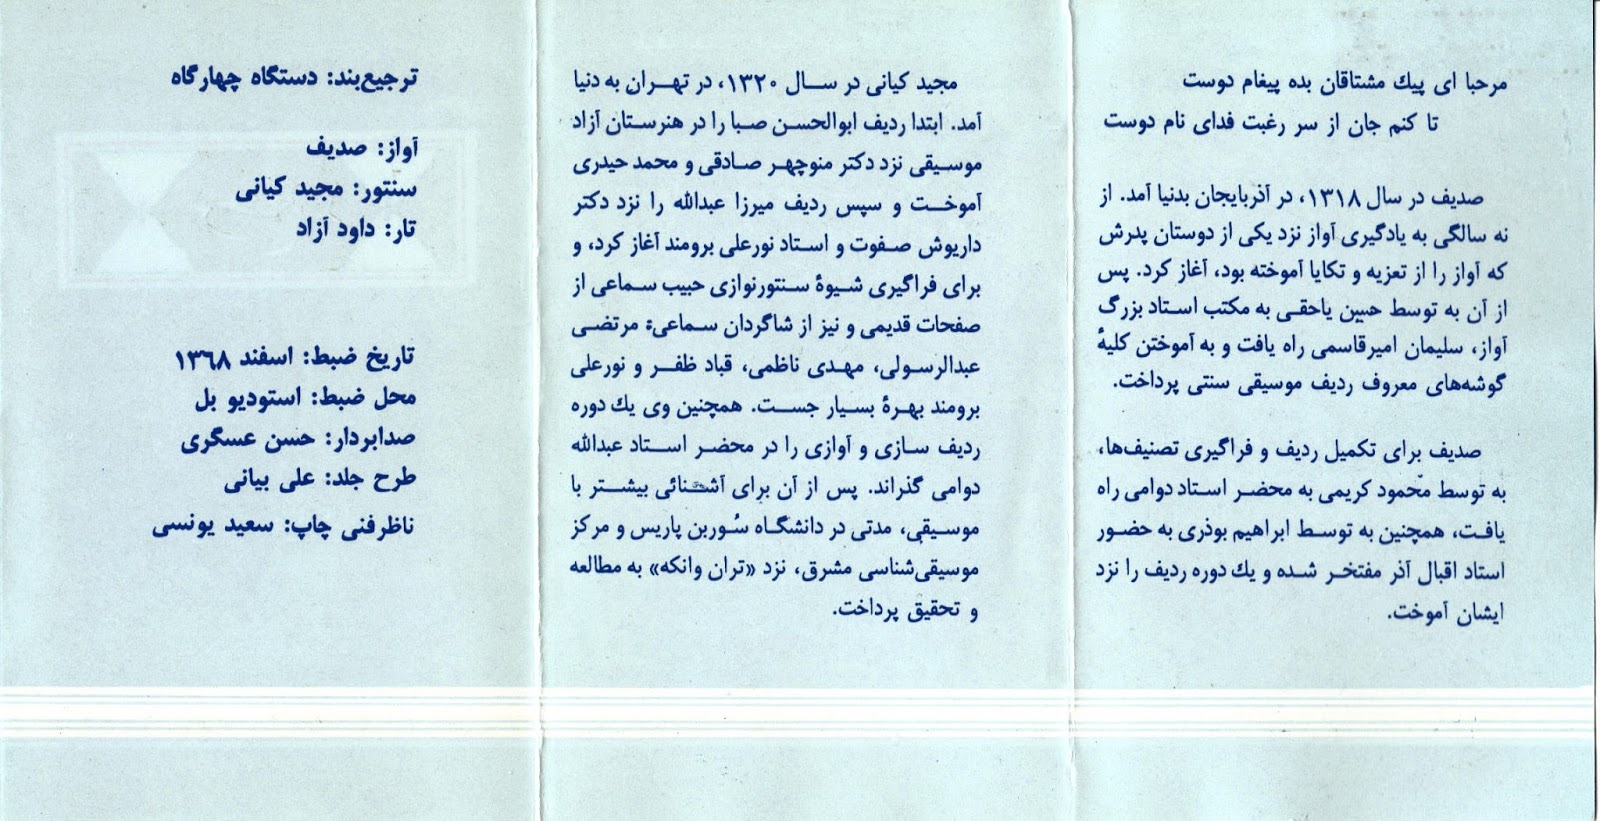 مرحبا ای پیك مشتاقان بده پیغام دوست
تا كنم جان از سر رغبت فدای نام دوست
صدیف در سال ۱۳۱۸، در آذربایجان بدنیا آمد. از
نه سالگی به یادگیری آواز نزد یكی از دوستان پدرش
كه آواز را از تعزیه و تكایا آموخته بود، آغاز كرد. پس
از آن به توسط حسین یاحقی به مكتب استاد بزرگ
آواز، سلیمان امیرقاسمی راه یافت و به آموختن كلیهٔ
گوشه‌های معروف ردیف موسیقی سنتی پرداخت.
صدیف برای تكمیل ردیف و فراگیری تصنیف‌ها،
به توسط محمود كریمی به محضر استاد دوامی راه
یافت، همچنین به توسط ابراهیم بوذری به حضور
استاد اقبال آذر مفتخر شده و یك دوره ردیف را نزد
ایشان آموخت.
مجید كیانی در سال ۱۳۲۰، در تهران به دنیا
آمد. ابتدا ردیف ابوالحسن صبا را در هنرستان آزاد
موسیقی نزد دكتر منوچهر صادقی و محمد حیدری
آموخت و سپس ردیف میرزا عبدالله را نزد دكتر
داریوش صفوت و استاد نورعلی برومند آغاز كرد، و
برای فراگیری شیوهٔ سنتورنوازی حبیب سماعی از
صفحات قدیمی و نیز از شاگردان سماعی؛ مرتضی
عبدالرسولی، مهدی ناظمی، قباد ظفر و نورعلی
برومند بهرهٔ بسیار جست. همچنین وی یك دوره
ردیف سازی و آوازی را در محضر استاد عبدالله
دوامی گذراند. پس از آن برای آشنائی بیشتر با
موسیقی، مدتی در دانشگاه سُوربن پاریس و مركز
موسیقی‌شناسی مشرق، نزد «تران وانكه» به مطالعه
و تحقیق پرداخت.
ترجیع‌بند: دستگاه چهارگاه
آواز: صدیف
سنتور: مجید كیانی
تار: داود آزاد
تاریخ ضبط: اسفند ۱۳۶۸
محل ضبط: استودیو بل
صدابردار: حسن عسگری
طرح جلد: علی بیانی
ناظرفنی چاپ: سعید یونسی